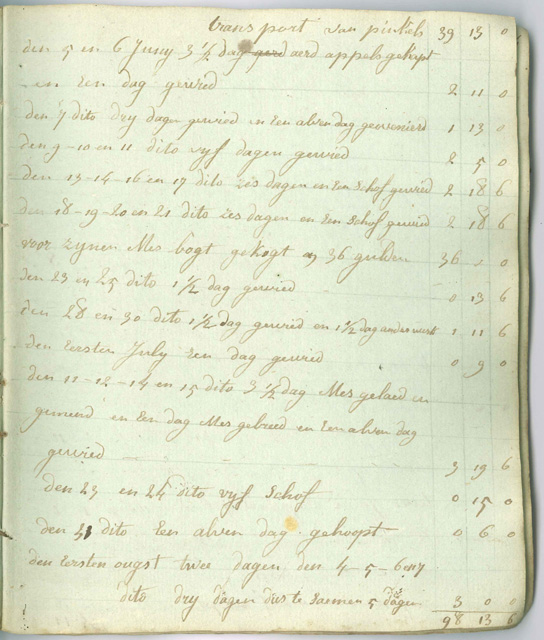 transport van pinkels 39 13 0
den 5 en 6 Juny 3 1/2 dag aerd appels gekapt
en een dag gewied 2 11 0
den 7 dito dry dagen gewied en een alven dag 1 13 0
den 9-10 en 11 dito vyf dagen gewied 2 5 0
den 13-14-16 en 17 dito zes dagen en een schof gewied 2 18 6
den 18-19-20 en 21 dito zes dagen en een schof gewied 2 18 6
voor zynen Mes bogt gekogt 36 gulden 36 0
den 23 en 25 dito 1 1/2 dag gewied 0 13 6
den 28 en 30 dito 1 1/2 dag gewied en 1 1/2 dag ander werk 1 11 6
den eersten July een dag gewied 0 9 0
den 11-12-14 en 15 dito 3 1/2 dag Mes gelaed en
en een dag Mes gebreed en een alven dag
gewied 3 19 6
den 23 en 24 dito vyf schof 0 15 0
den 31 dito een alven dag gehoopt 0 6 0
den eersten ougst twee dagen den 4-5-6 en 7
dito dry dagen dus te saemen 5 dagen 3 0 0
98 13 6